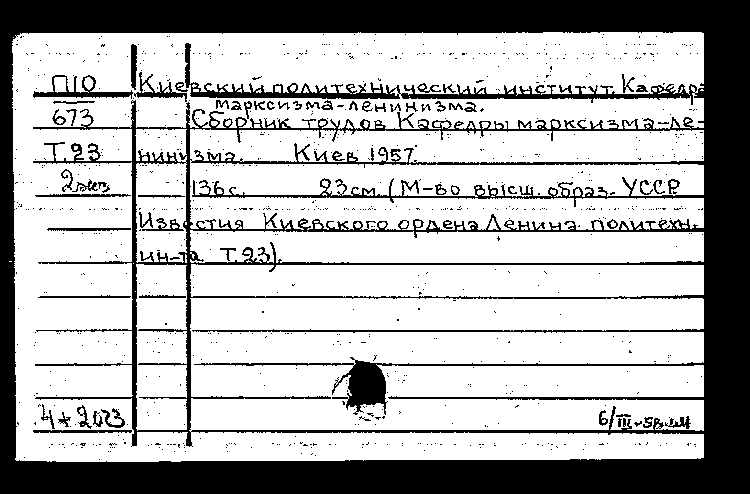 П10 Киевский политехнический институт. Кафедра
марксизма-ленинизма.
673 Сборник трудов Кафедры марксизма-ле-
Т.23 нинизма. Киев, 1957.
2экз 136 с. 23 см. (М-во высш. образ. УССР
Известия Киевского ордена Ленина политехн.
ин-та Т.23).
4+2экз 6/III-58